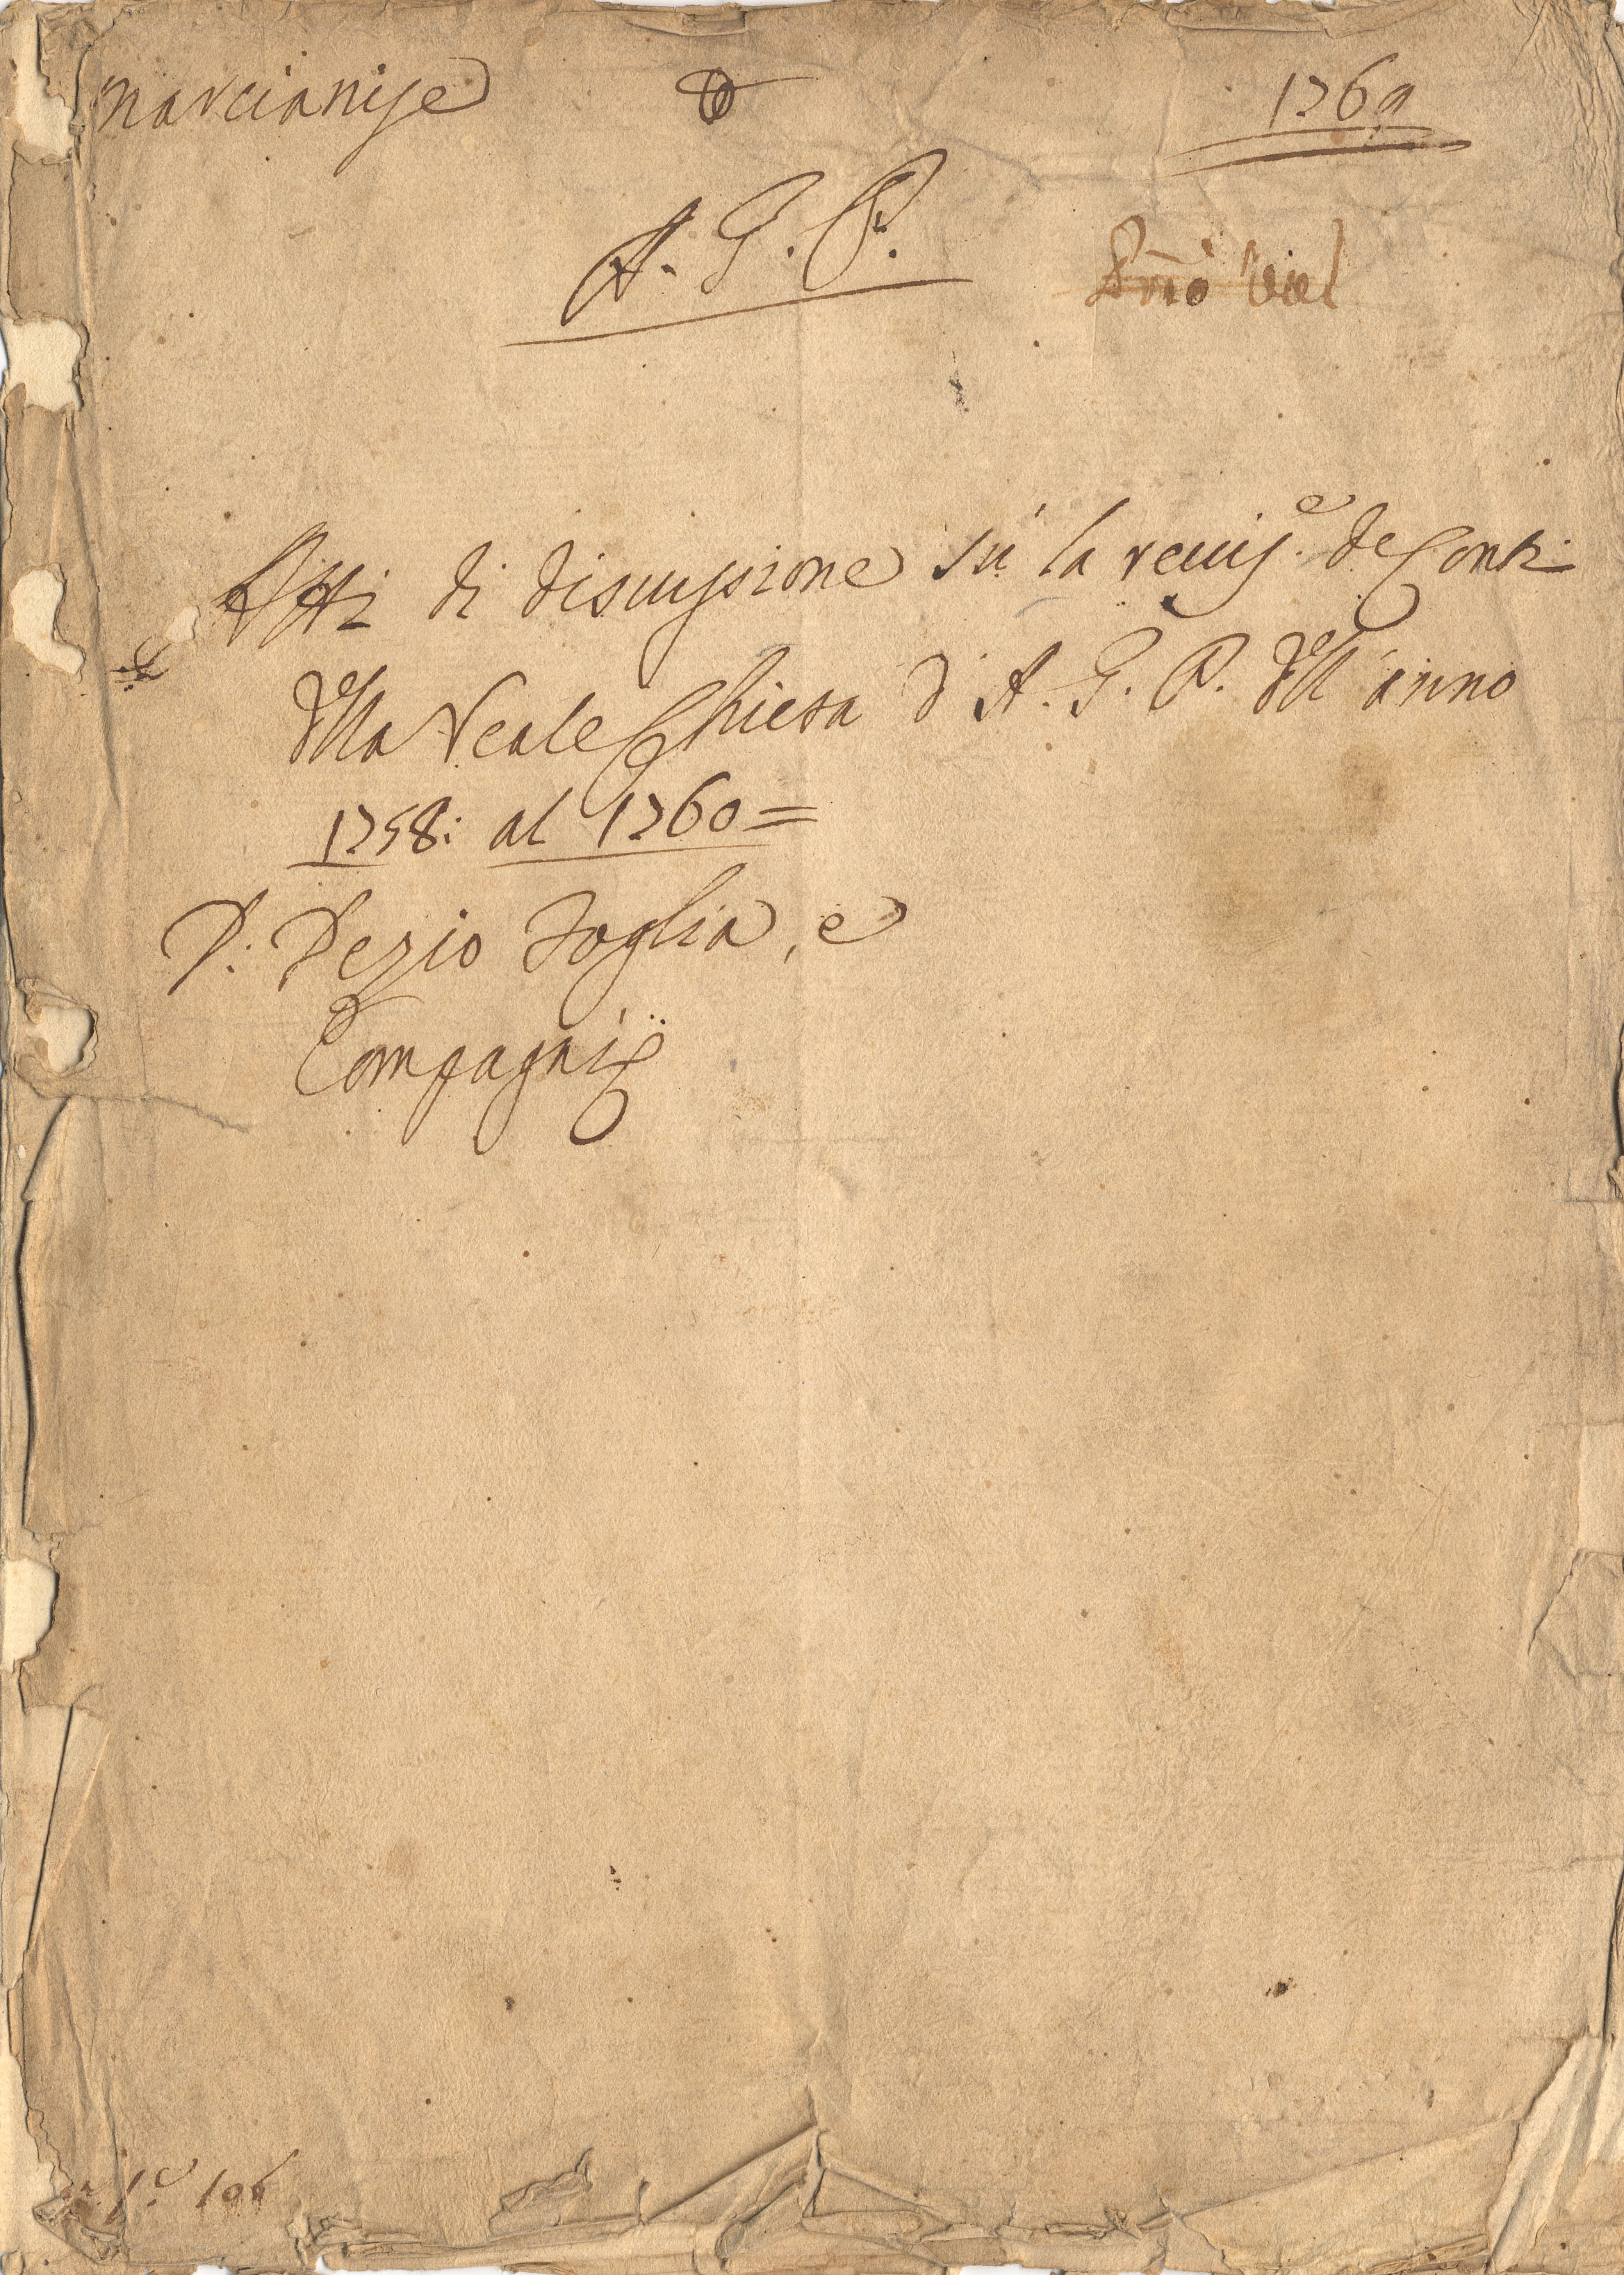 Marcianise
1769
A. G. P.
Atti di discussione su la revis.e de Conti
della Reale Chiesa d' A. G. P. dell' anno
1758: al 1760=
D: Dezio Foglia, e
Compagni
106